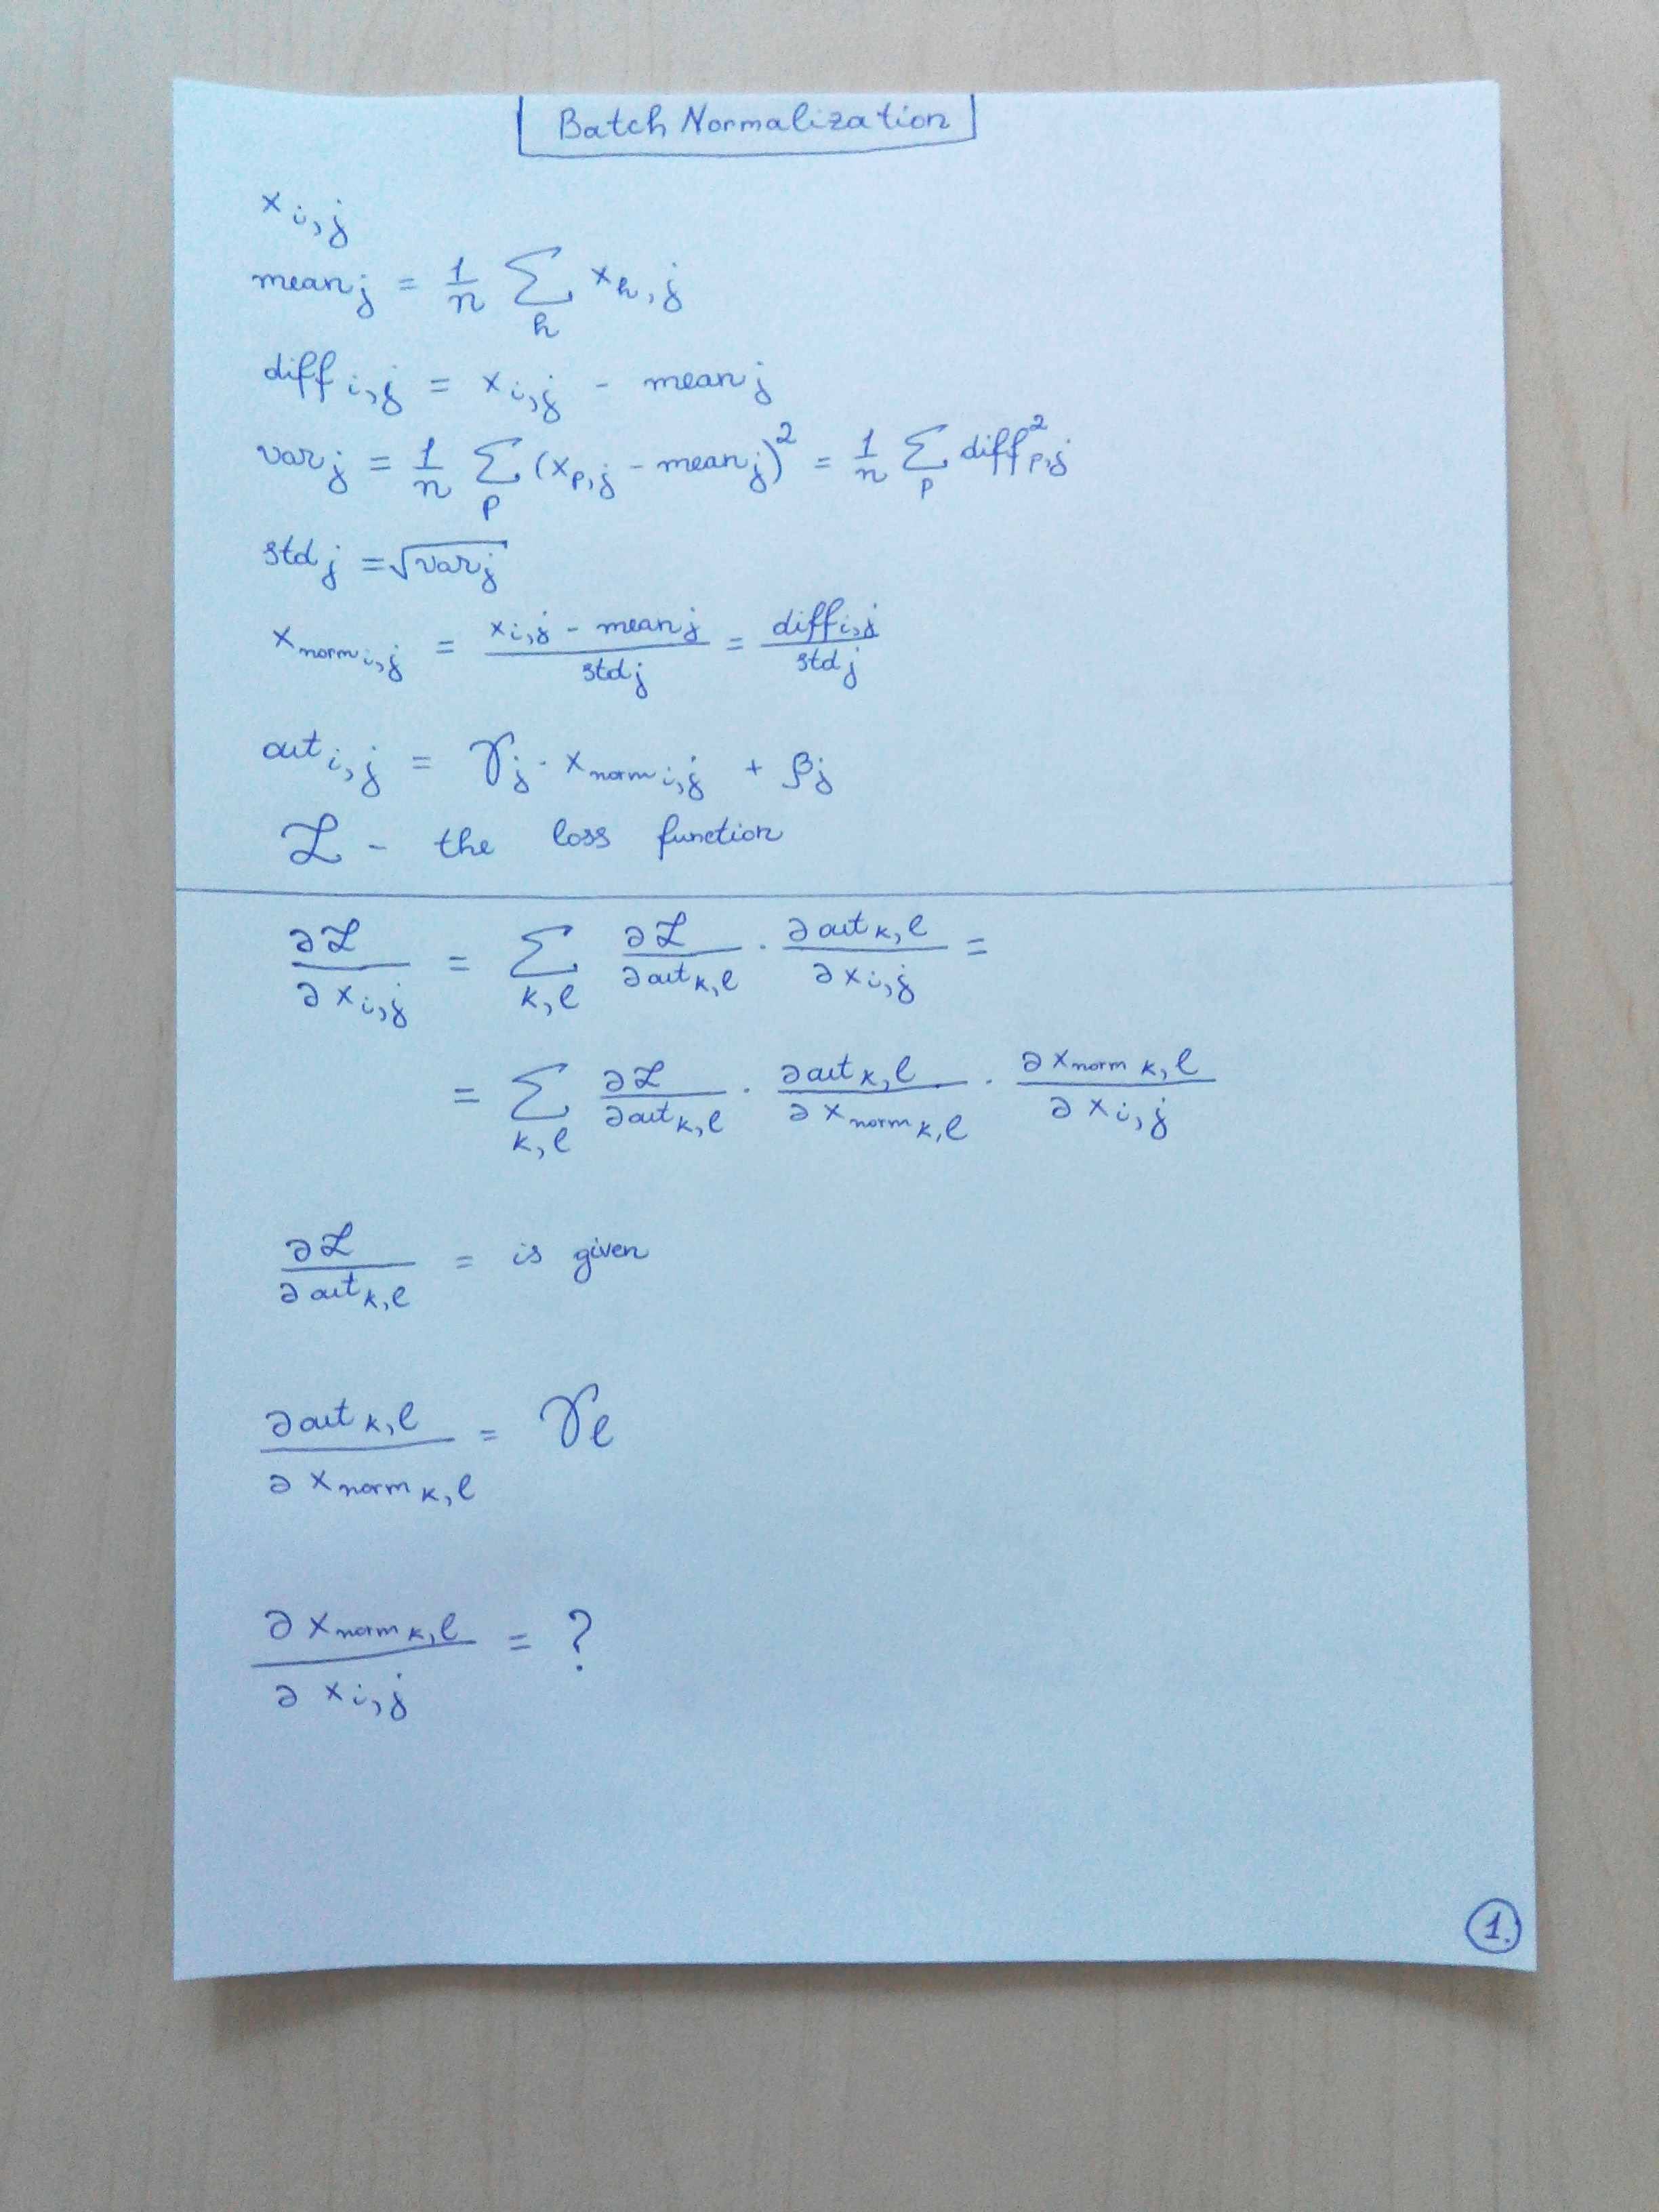 Batch Normalization
x_{i,j}
mean_j = \frac{1}{n} \sum_h x_{h,j}
diff_{i,j} = x_{i,j} - mean_j
var_j = \frac{1}{n} \sum_p (x_{p,j} - mean_j)^2 = \frac{1}{n} \sum_p diff^2_{p,j}
std_j = \sqrt{var_j}
x_{norm i,j} = \frac{x_{i,j} - mean_j}{std_j} = \frac{diff_{i,j}}{std_j}
out_{i,j} = γ_j · x_{norm i,j} + β_j
ℒ - the loss function
\frac{∂ℒ}{∂x_{i,j}} = \sum_{k,l} \frac{∂ℒ}{∂out_{k,l}} · \frac{∂out_{k,l}}{∂x_{i,j}} =
= \sum_{k,l} \frac{∂ℒ}{∂out_{k,l}} · \frac{∂out_{k,l}}{∂x_{norm k,l}} · \frac{∂x_{norm k,l}}{∂x_{i,j}}
\frac{∂ℒ}{∂out_{k,l}} = is given
\frac{∂out_{k,l}}{∂x_{norm k,l}} = γ_l
\frac{∂x_{norm k,l}}{∂x_{i,j}} = ?
1.